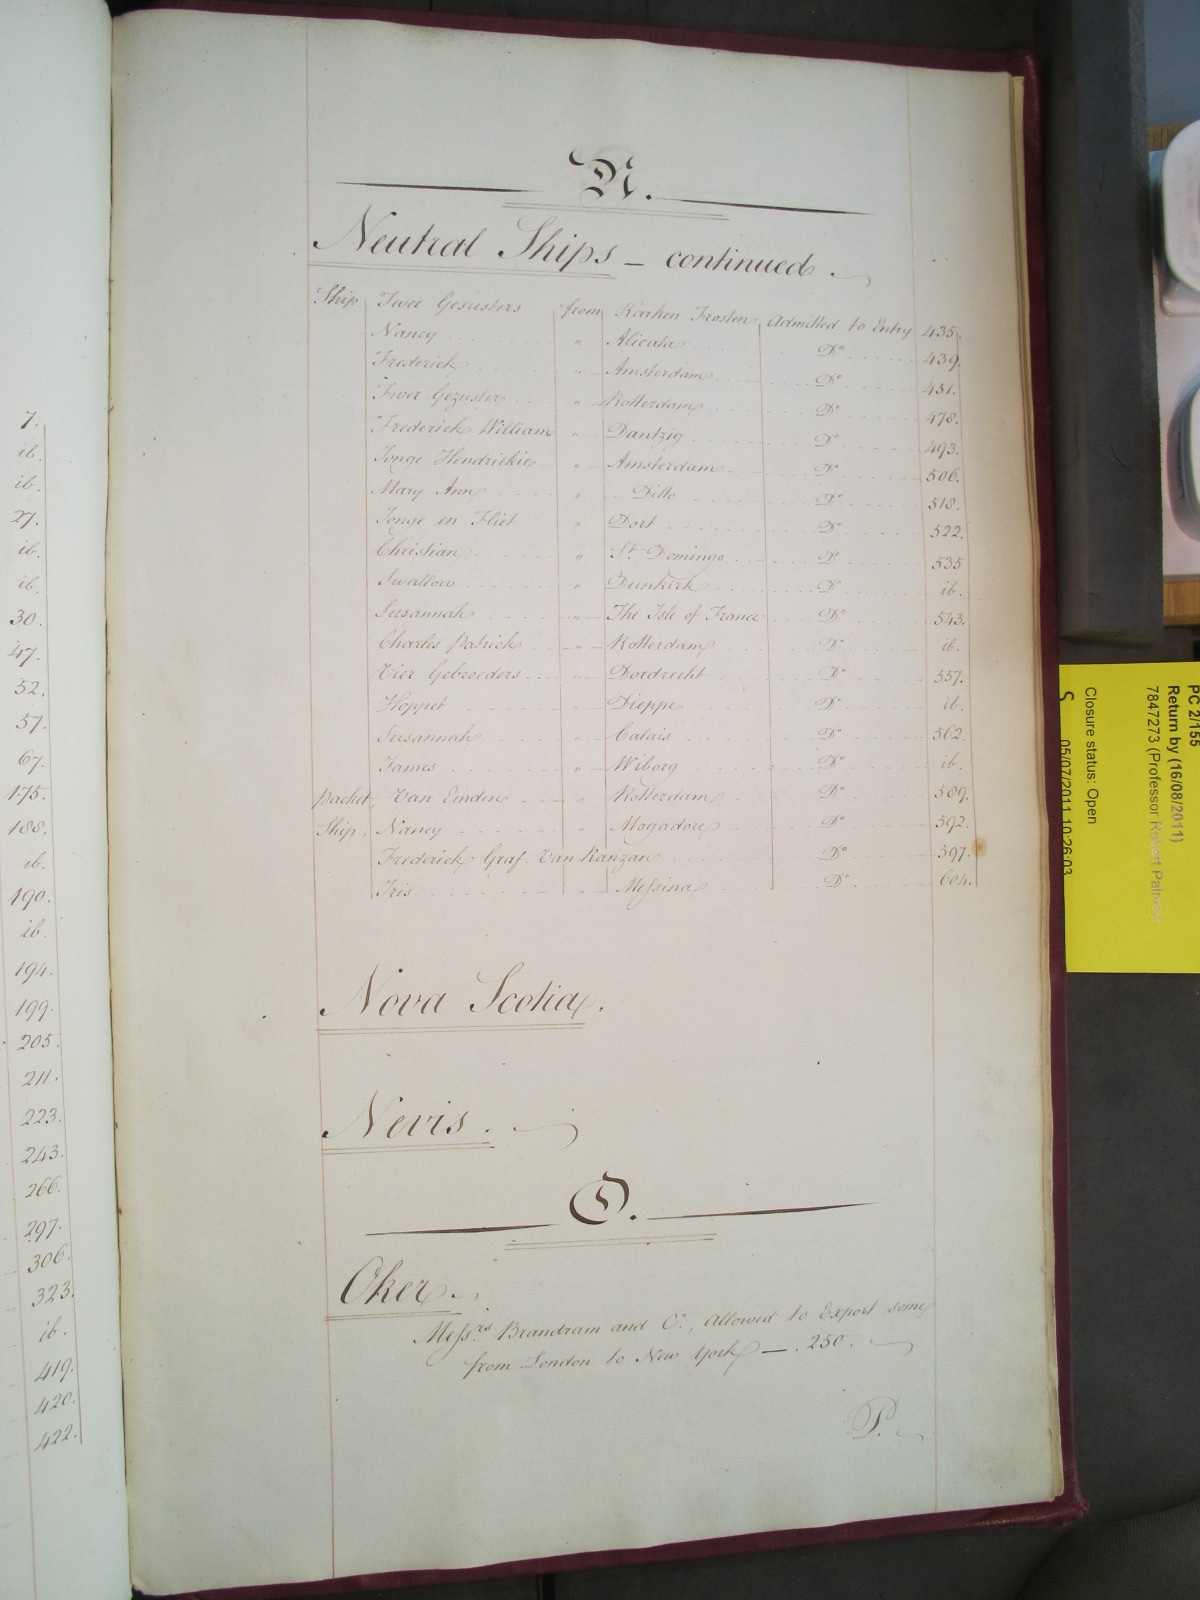 7.
ib.
ib.
27.
ib.
ib.
30.
47.
52.
57.
67.
175.
188.
ib.
190.
ib.
194.
199.
205.
211.
223.
243.
266.
297.
306.
323.
ib.
419.
420.
422.
N.
Neutral Ships - continued.
Ship Twee Gesusters from Karhen Frosten Admitted to Entry 435.
Nancy " Alicata Do 439.
Frederick " Amsterdam Do 451.
Twee Gezuster " Rotterdam Do 478.
Frederick William " Dantzig Do 493.
Jonge Hendrickie " Amsterdam Do 506.
Mary Ann " Ditto Do 518.
Jonge en Fliet " Dort Do 522.
Christian " St. Domingo Do 535
Swallow " Dunkirk Do ib.
Susannah " The Isle of France Do 543.
Charles Patrick " Rotterdam Do ib.
Vier Gebroeders " Doedrecht Do 557.
Hoppet " Dieppe Do ib.
Susannah " Calais Do 562.
James " Wiborg Do ib.
Packet Van Emden " Rotterdam Do 589.
Ship Nancy " Mogadore Do 592.
Frederick Graf Van Ranzan Do 597.
Iris " Messina Do 604.
Nova Scotia.
Nevis.
O.
Oker.
Messrs. Brandram and Co., Allowed to Export some
from London to New York — 250.
P.
PC 2/155
Return by (16/08/2011)
7847273 (Professor Robert Palmer)
Closure status: Open
S 05/07/2011 10:26:03